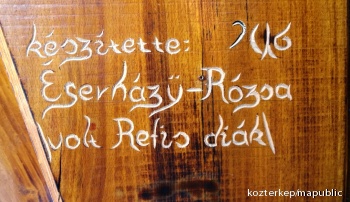 készítette:
Eserházy-Rózsa
volt Refis diák
kozterkep/mapublic